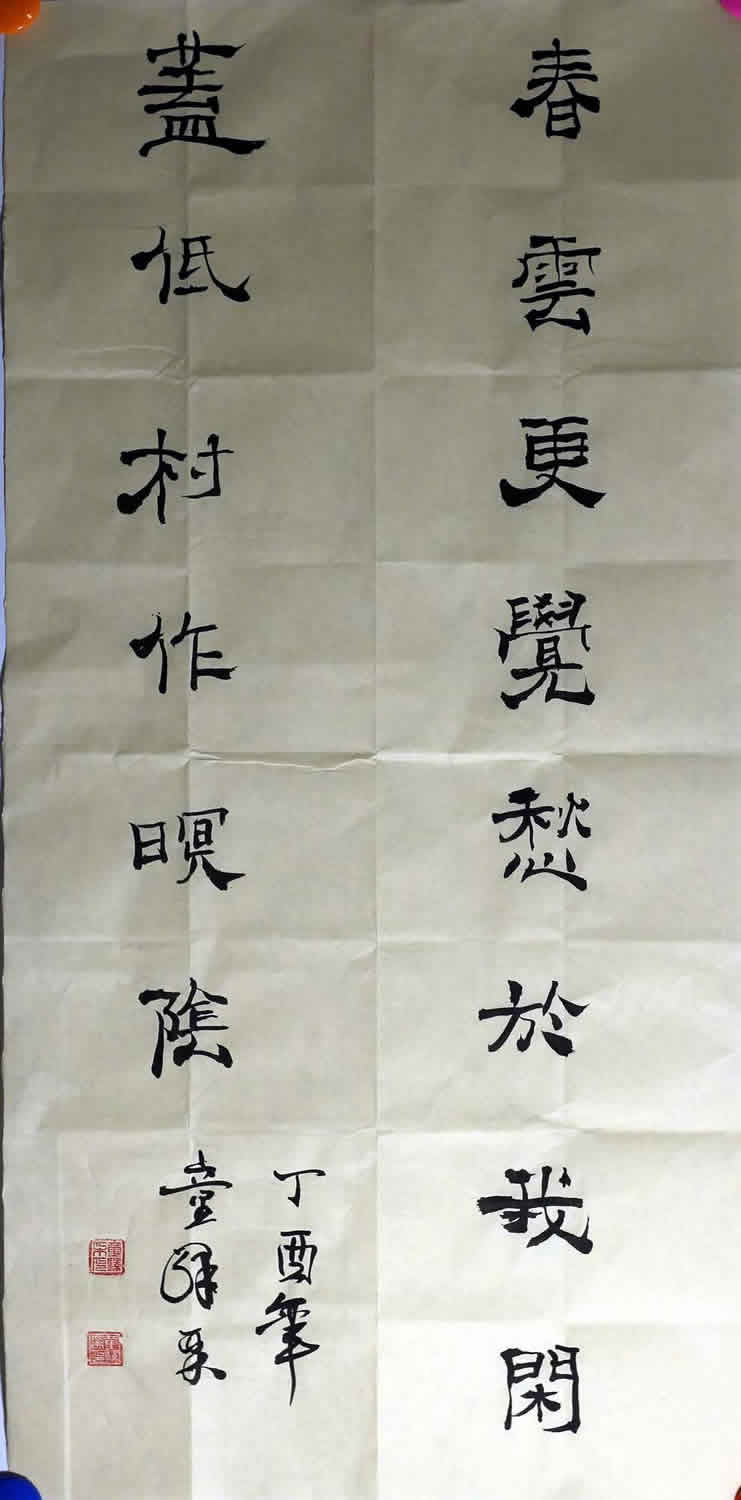 春雲更覺愁於我閑
蓋低村作暝陰
丁酉年
童